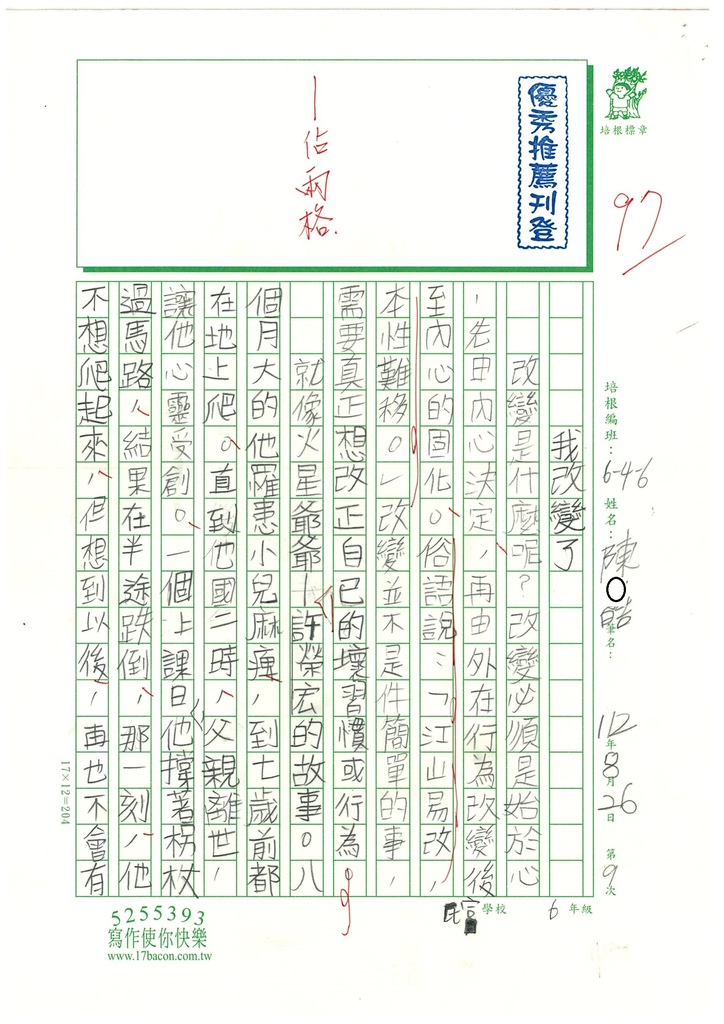 優秀推薦刊登
培根標章
97
｜佔兩格.
培根編班：6-4-6 姓名：陳 皓 筆名： 112年8月26日 第9次
我改變了
改變是什麼呢？改變必須是始於心
，先由內心決定，再由外在行為改變後
至內心的固化。俗語說：「江山易改，
本性難移。」改變並不是件簡單的事，
需要真正想改正自己的壞習慣或行為
就像火星爺爺｜許榮宏的故事。八
個月大的他罹患小兒麻痺，到七歲前都
在地上爬。直到他國二時，父親離世，
讓他心靈受創。一個上課日他撐著柺杖
過馬路，結果在半途跌倒，那一刻，他
不想爬起來，但想到以後，再也不會有
17×12=204
學校 6 年級
5255393
寫作使你快樂
www.17bacon.com.tw